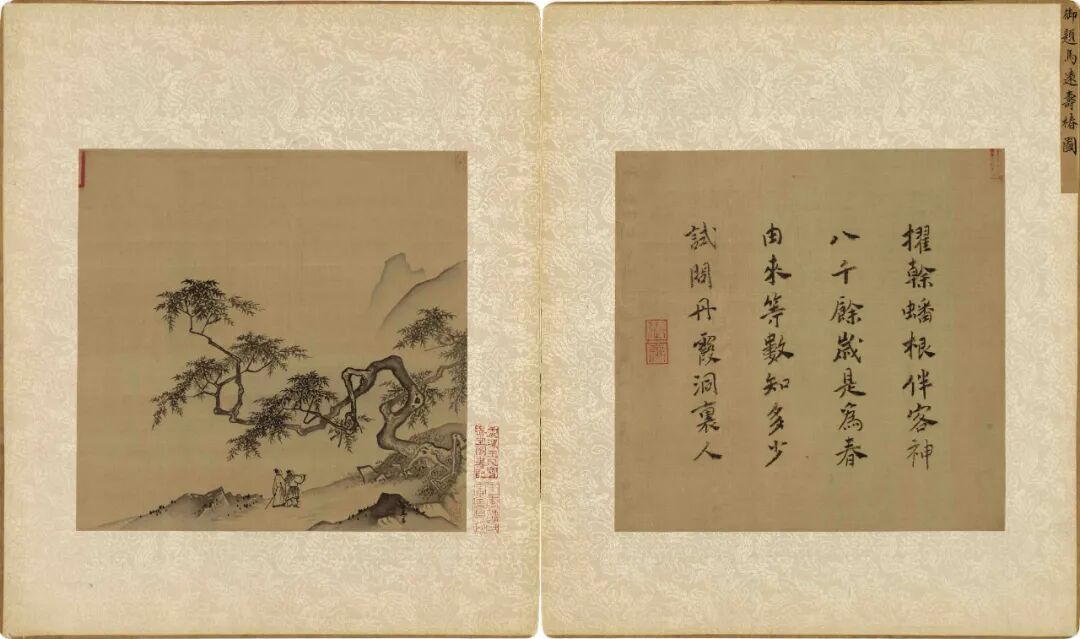 御題馬遠壽椿圖
擢榦蟠根伴客神
八千餘歲是為春
由來等數知多少
試問丹霞洞裏人